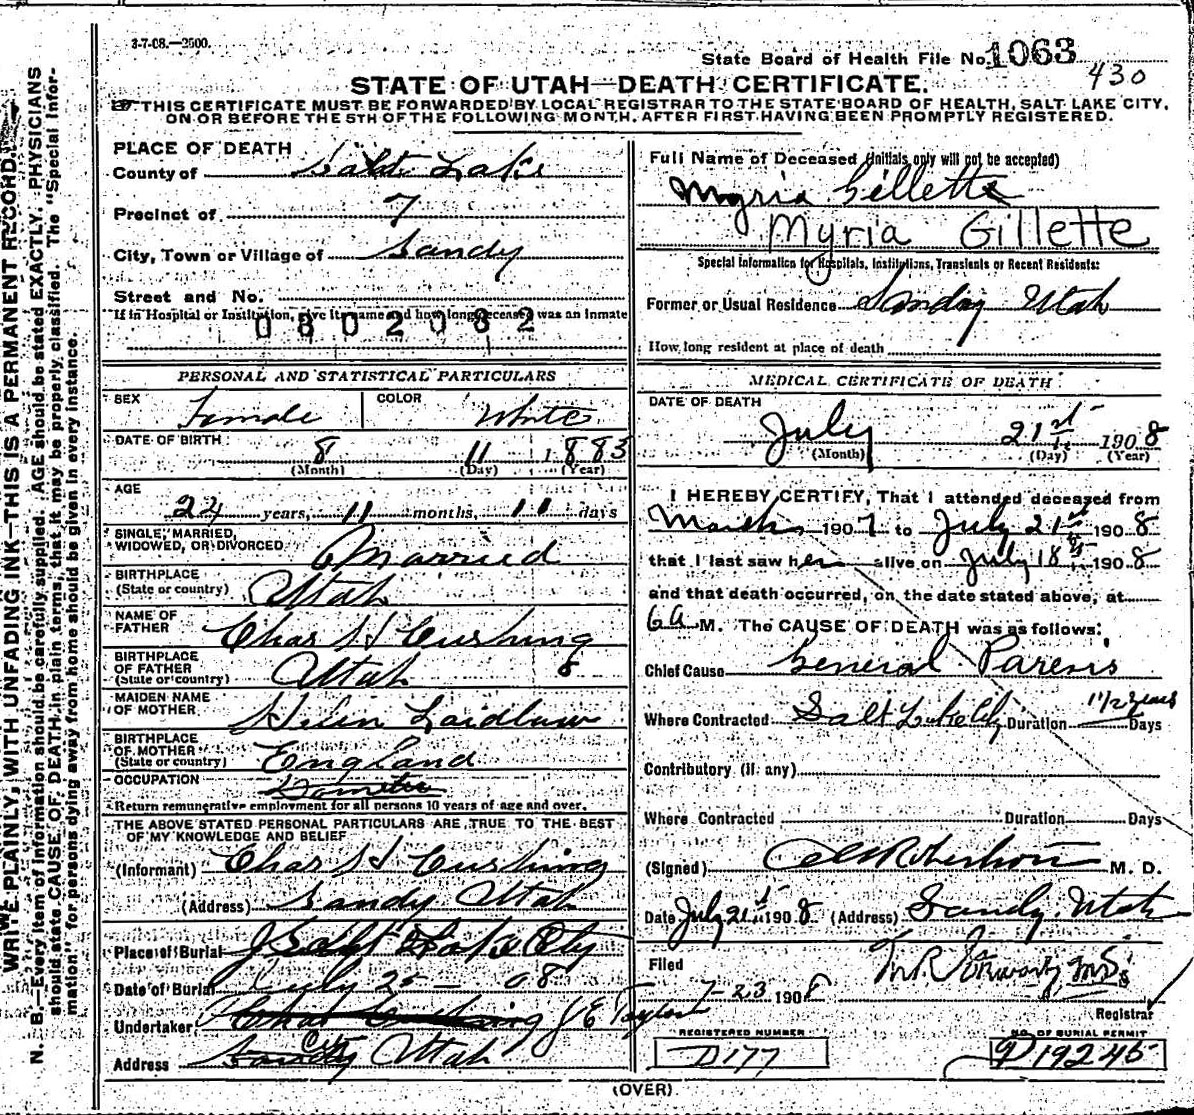 3-7-08.—2500.
State Board of Health File No. 1063
430
STATE OF UTAH—DEATH CERTIFICATE.
THIS CERTIFICATE MUST BE FORWARDED BY LOCAL REGISTRAR TO THE STATE BOARD OF HEALTH, SALT LAKE CITY,
ON OR BEFORE THE 5TH OF THE FOLLOWING MONTH, AFTER FIRST HAVING BEEN PROMPTLY REGISTERED.
WRITE PLAINLY, WITH UNFADING INK—THIS IS A PERMANENT RECORD.
N. B.—Every item of information should be carefully supplied. AGE should be stated EXACTLY. PHYSICIANS
should state CAUSE OF DEATH in plain terms, that it may be properly classified. The "Special Infor-
mation" for persons dying away from home should be given in every instance.
PLACE OF DEATH
County of Salt Lake
Precinct of 7
City, Town or Village of Sandy
Street and No.
If in Hospital or Institution, give its name and how long deceased was an inmate
0802082
PERSONAL AND STATISTICAL PARTICULARS
SEX Female COLOR White
DATE OF BIRTH 8 11 1883
(Month) (Day) (Year)
AGE
24 years, 11 months, 11 days
SINGLE, MARRIED,
WIDOWED, OR DIVORCED Married
BIRTHPLACE
(State or country) Utah
NAME OF
FATHER Chas H Cushing
BIRTHPLACE
OF FATHER
(State or country) Utah
MAIDEN NAME
OF MOTHER Helen Laidlaw
BIRTHPLACE
OF MOTHER
(State or country) England
OCCUPATION
Return remunerative employment for all persons 10 years of age and over.
THE ABOVE STATED PERSONAL PARTICULARS ARE TRUE TO THE BEST
OF MY KNOWLEDGE AND BELIEF
(Informant) Chas H Cushing
(Address) Sandy Utah
Place of Burial Salt Lake City
Date of Burial July 25 - 08
Undertaker Chas Cushing J E Taylor
Address Sandy City Utah
Full Name of Deceased (Initials only will not be accepted)
Myria Gillette
Myria Gillette
Special Information for Hospitals, Institutions, Transients or Recent Residents:
Former or Usual Residence Sandy Utah
How long resident at place of death
MEDICAL CERTIFICATE OF DEATH
DATE OF DEATH
July 21st 1908
(Month) (Day) (Year)
I HEREBY CERTIFY, That I attended deceased from
March 1907 to July 21st 1908
that I last saw her alive on July 18th 1908
and that death occurred, on the date stated above, at
6 a M. The CAUSE OF DEATH was as follows:
Chief Cause General Paresis
Where Contracted Salt Lake City Duration 1 1/2 years Days
Contributory (if any)
Where Contracted Duration Days
(Signed) Robertson M. D.
Date July 21st 1908 (Address) Sandy Utah
Filed
7-23 1908
Registrar
REGISTERED NUMBER
D177
NO. OF BURIAL PERMIT
D19245
(OVER)